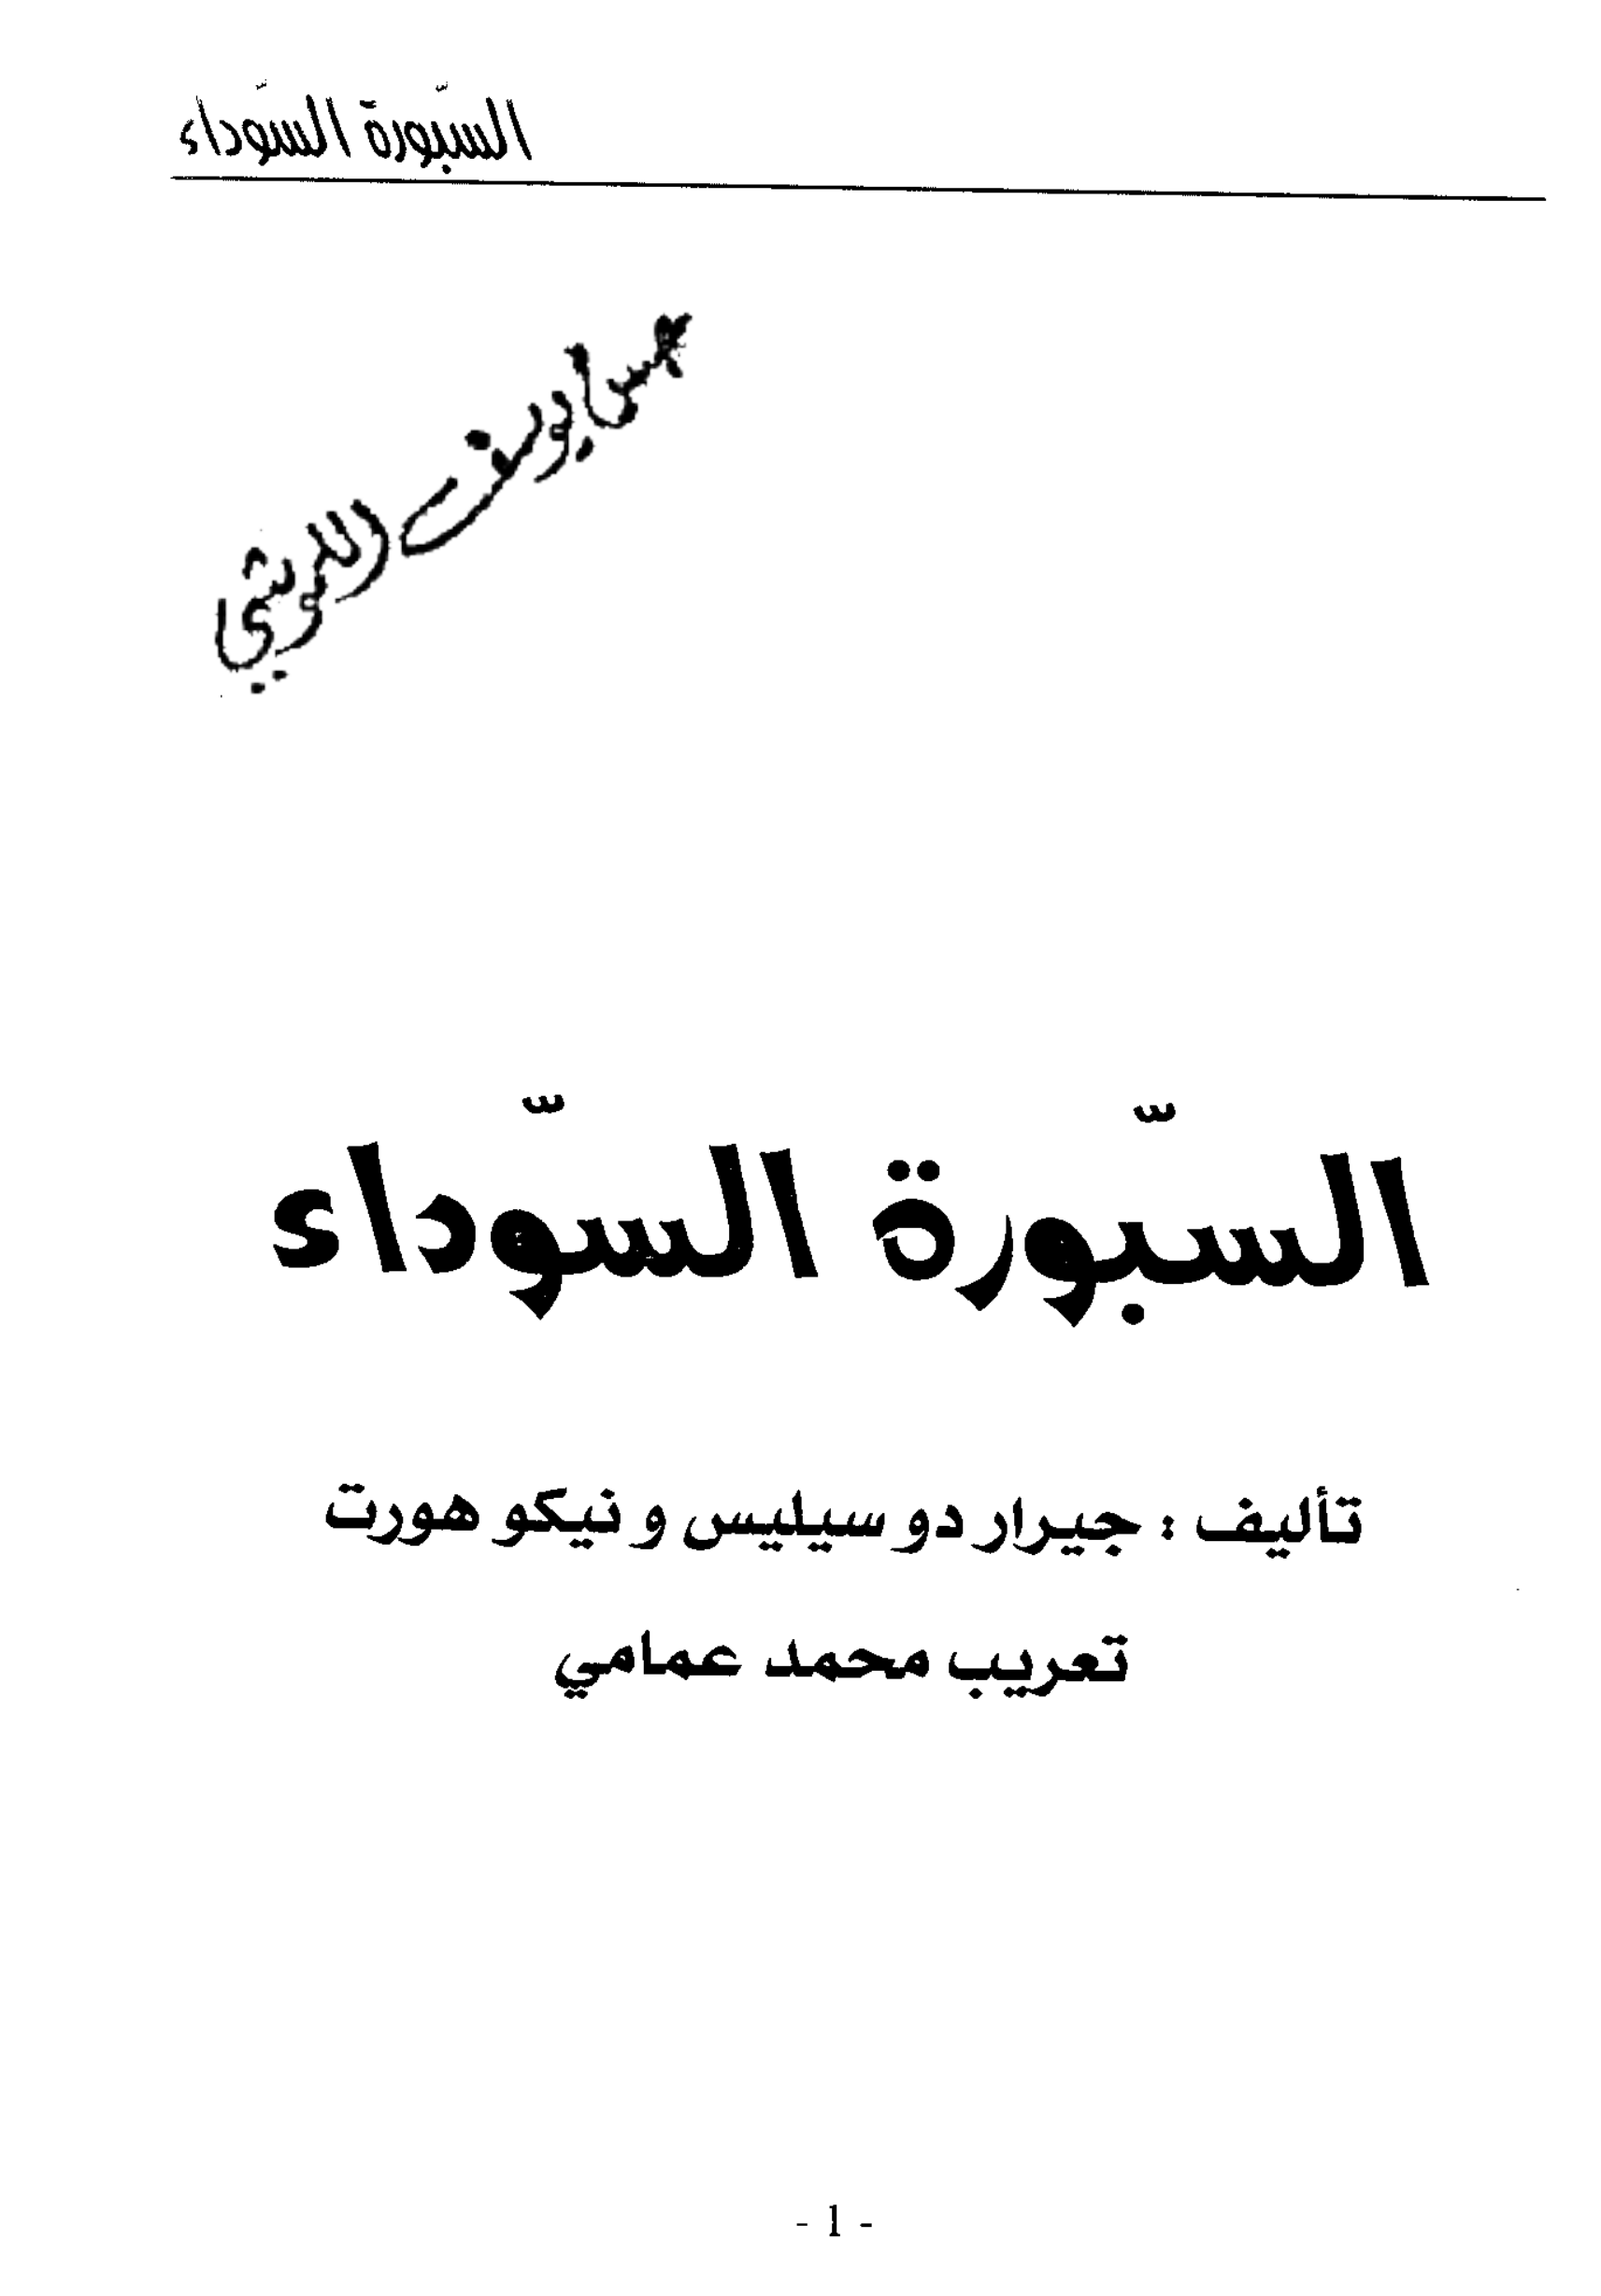 السبّورة السّوداء
السبّورة السّوداء
تأليف : جيرار دو سيليس و نيكو هورت
تعريب محمد عمامي
- 1 -